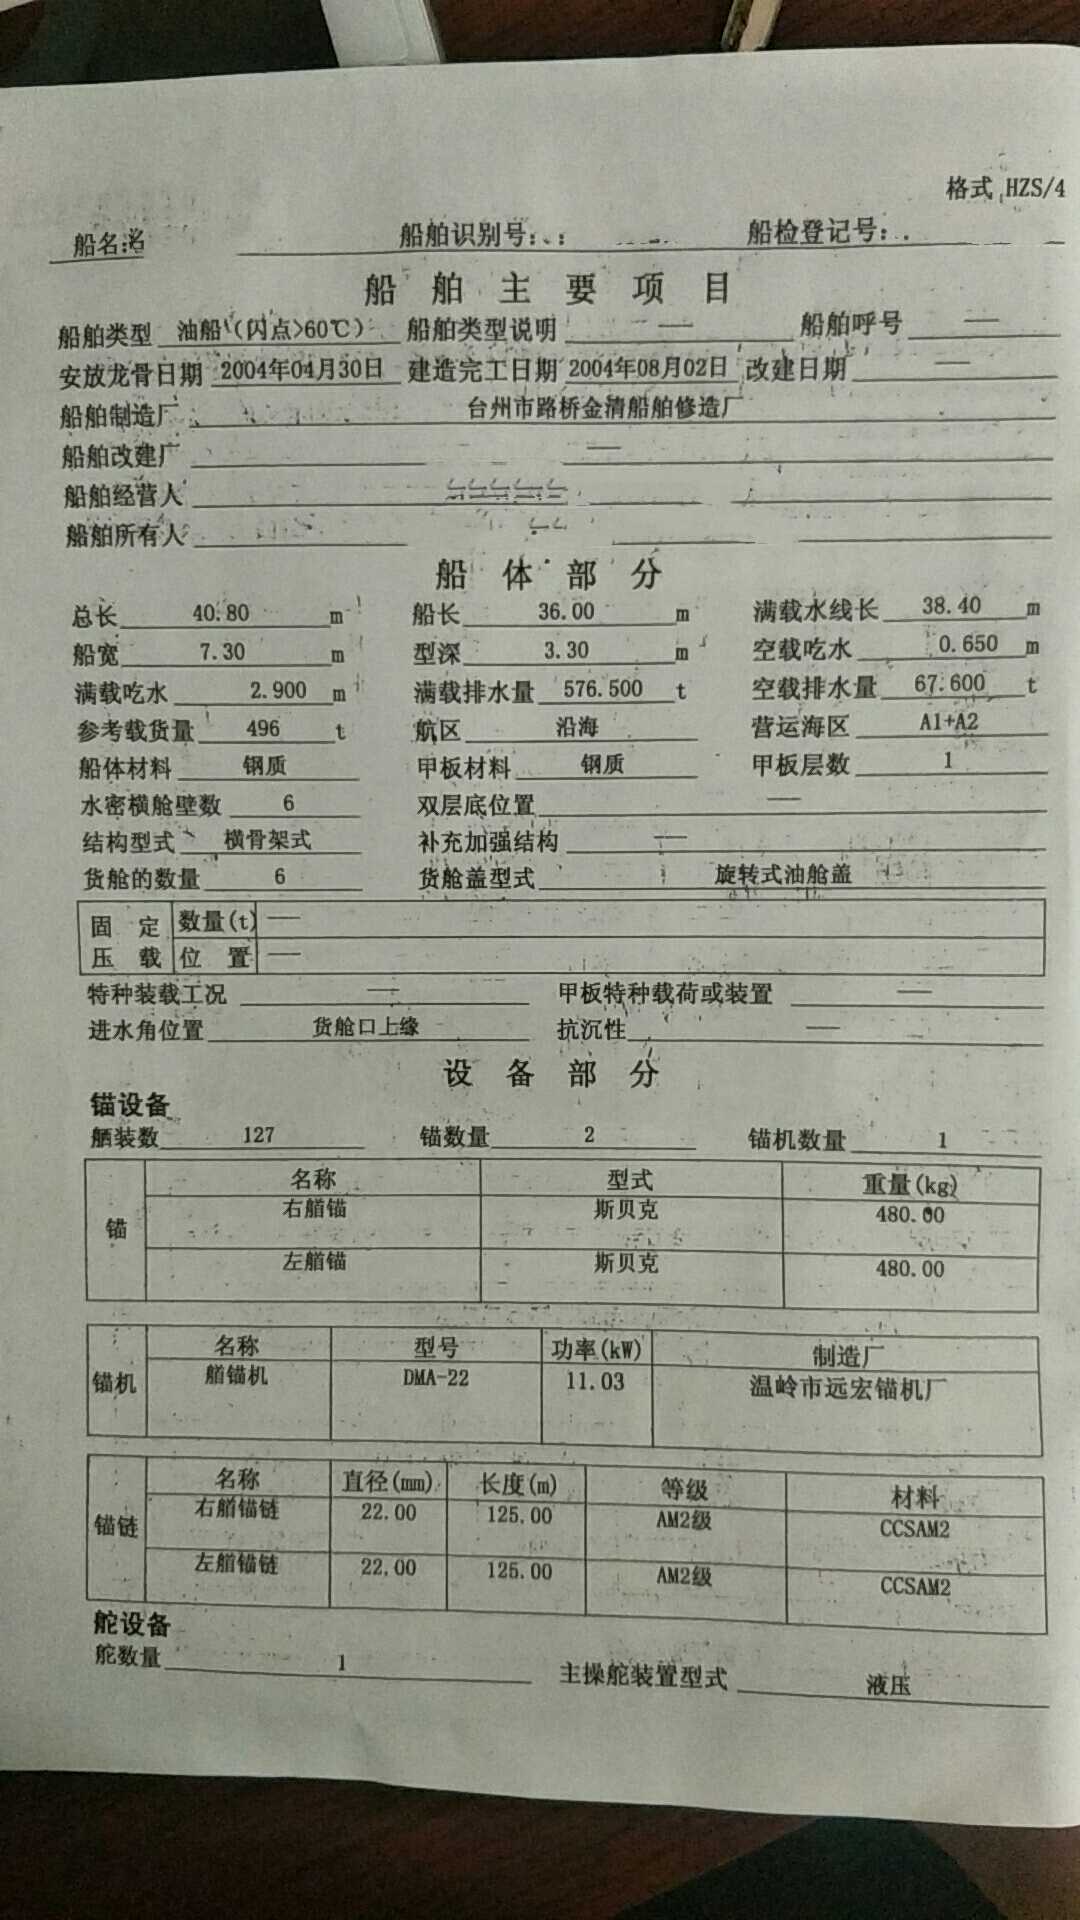 格式 HZS/4
船名: 船舶识别号: 船检登记号:
船舶主要项目
船舶类型 油船(闪点>60℃) 船舶类型说明 — 船舶呼号 —
安放龙骨日期 2004年04月30日 建造完工日期 2004年08月02日 改建日期 —
船舶制造厂 台州市路桥金清船舶修造厂
船舶改建厂 —
船舶经营人
船舶所有人
船体部分
总长 40.80 m 船长 36.00 m 满载水线长 38.40 m
船宽 7.30 m 型深 3.30 m 空载吃水 0.650 m
满载吃水 2.900 m 满载排水量 576.500 t 空载排水量 67.600 t
参考载货量 496 t 航区 沿海 营运海区 A1+A2
船体材料 钢质 甲板材料 钢质 甲板层数 1
水密横舱壁数 6 双层底位置 —
结构型式 横骨架式 补充加强结构 —
货舱的数量 6 货舱盖型式 旋转式油舱盖
固定压载 数量(t) —
位置 —
特种装载工况 — 甲板特种载荷或装置 —
进水角位置 货舱口上缘 抗沉性 —
设备部分
锚设备
舾装数 127 锚数量 2 锚机数量 1
锚 名称 型式 重量(kg)
右艏锚 斯贝克 480.00
左艏锚 斯贝克 480.00
锚机 名称 型号 功率(kW) 制造厂
艏锚机 DMA-22 11.03 温岭市远宏锚机厂
锚链 名称 直径(mm) 长度(m) 等级 材料
右艏锚链 22.00 125.00 AM2级 CCSAM2
左艏锚链 22.00 125.00 AM2级 CCSAM2
舵设备
舵数量 1 主操舵装置型式 液压